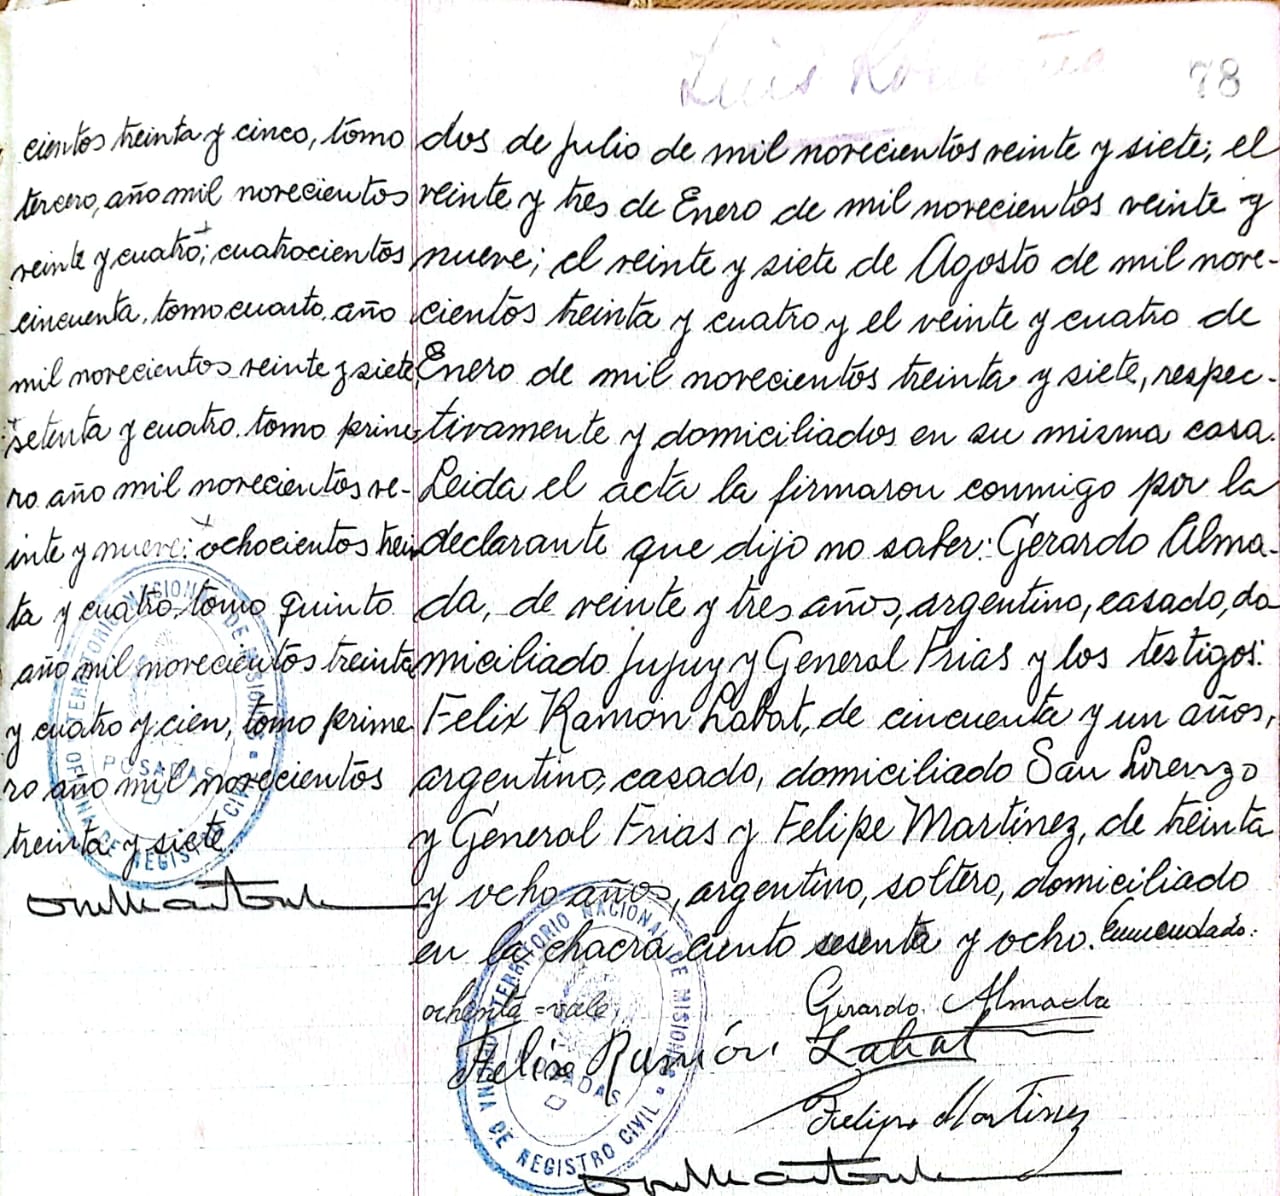 Luis
78
cientos treinta y cinco, tomo
tercero, año mil novecientos
veinte y cuatro; cuatrocientos
cincuenta, tomo cuarto, año
mil novecientos veinte y siete
setenta y cuatro, tomo prime
ro año mil novecientos ve-
inte y nueve; ochocientos trein
ta y cuatro, tomo quinto
año mil novecientos treinta
y cuatro y cien, tomo prime
ro año mil novecientos
treinta y siete
dos de julio de mil novecientos veinte y siete; el
veinte y tres de Enero de mil novecientos veinte y
nueve; el veinte y siete de Agosto de mil nove-
cientos treinta y cuatro y el veinte y cuatro de
Enero de mil novecientos treinta y siete, respec-
tivamente y domiciliados en su misma casa.
Leida el acta la firmaron conmigo por la
declarante que dijo no saber: Gerardo Alma-
da, de veinte y tres años, argentino, casado, do
miciliado Jujuy y General Frias y los testigos:
Felix Ramón Labat, de cincuenta y un años,
argentino, casado, domiciliado San Lorenzo
y General Frias y Felipe Martinez, de treinta
y ocho años, argentino, soltero, domiciliado
en la chacra ciento sesenta y ocho. Enmendado:
ochenta = vale
Gerardo Almada
Felix Ramón Labat
Felipe Martinez
TERRITORIO NACIONAL DE MISIONES
POSADAS
OFICINA DE REGISTRO CIVIL
TERRITORIO NACIONAL DE MISIONES
POSADAS
DE REGISTRO CIVIL